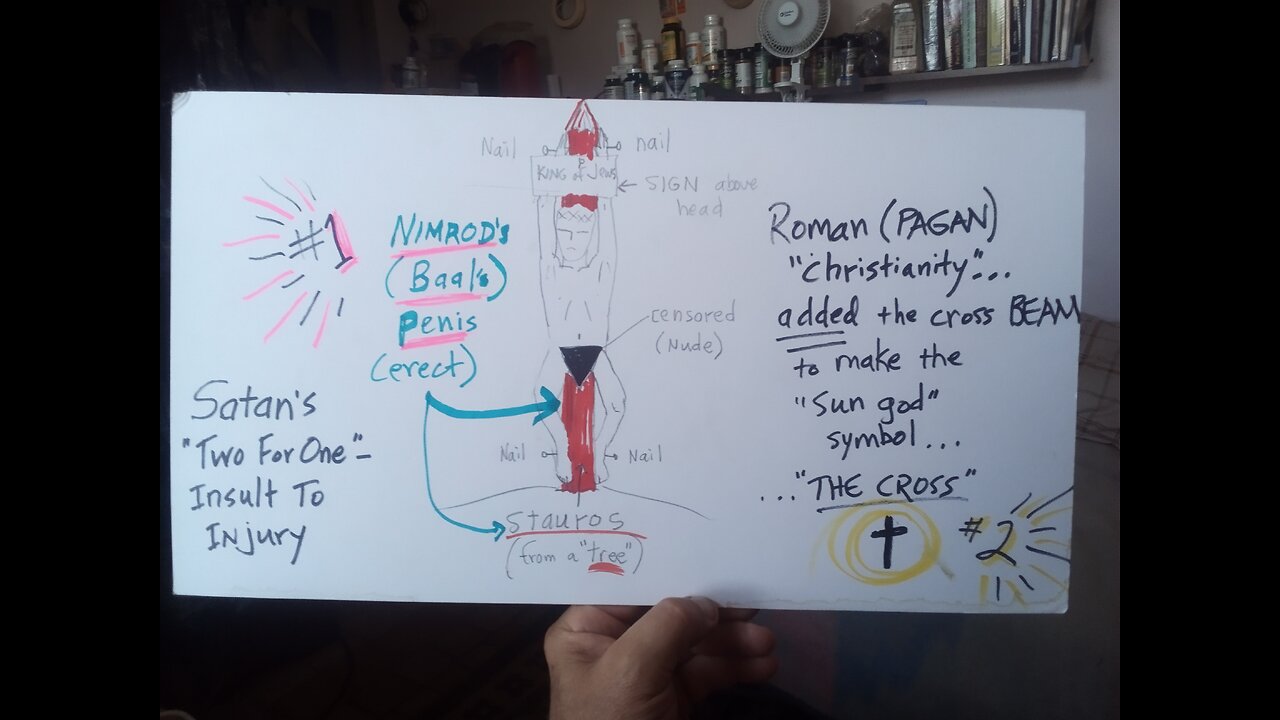 #1
NIMROD's
(Baal's)
Penis
(erect)
Satan's
"Two For One"-
Insult To
Injury
Nail
nail
KING of Jews
SIGN above
head
censored
(Nude)
Nail
Nail
Stauros
(from a "tree")
Roman (PAGAN)
"Christianity"...
added the cross BEAM
to make the
"Sun god"
symbol...
..."THE CROSS"
#2